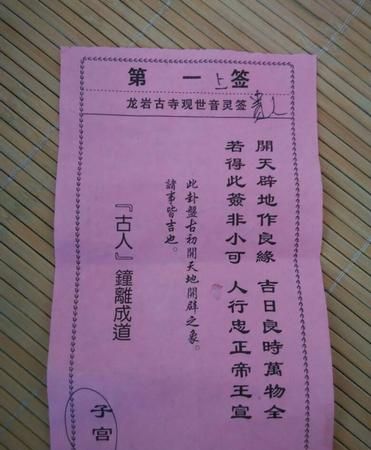 第一上签
龙岩古寺观世音灵签
開天辟地作良緣 吉日良時萬物全
若得此簽非小可 人行忠正帝王宣
此卦盤古初開天地開辟之象。
諸事皆吉也。
『古人』鐘離成道
子宮